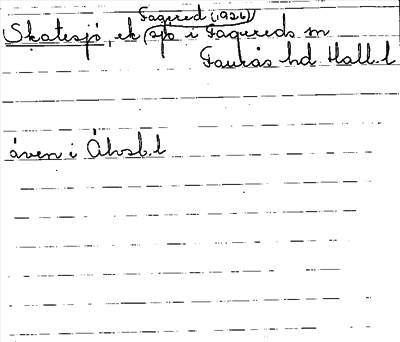 Fagered (1926)
Skatesjö, ek (sjö i Fagereds sn
Faurås hd Hall. l
även i Älvsb. l